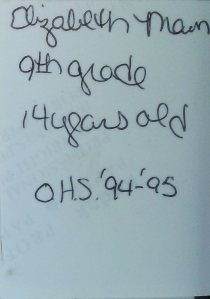 Elizabeth Mann
9th grade
14 years old
O.H.S. '94-'95